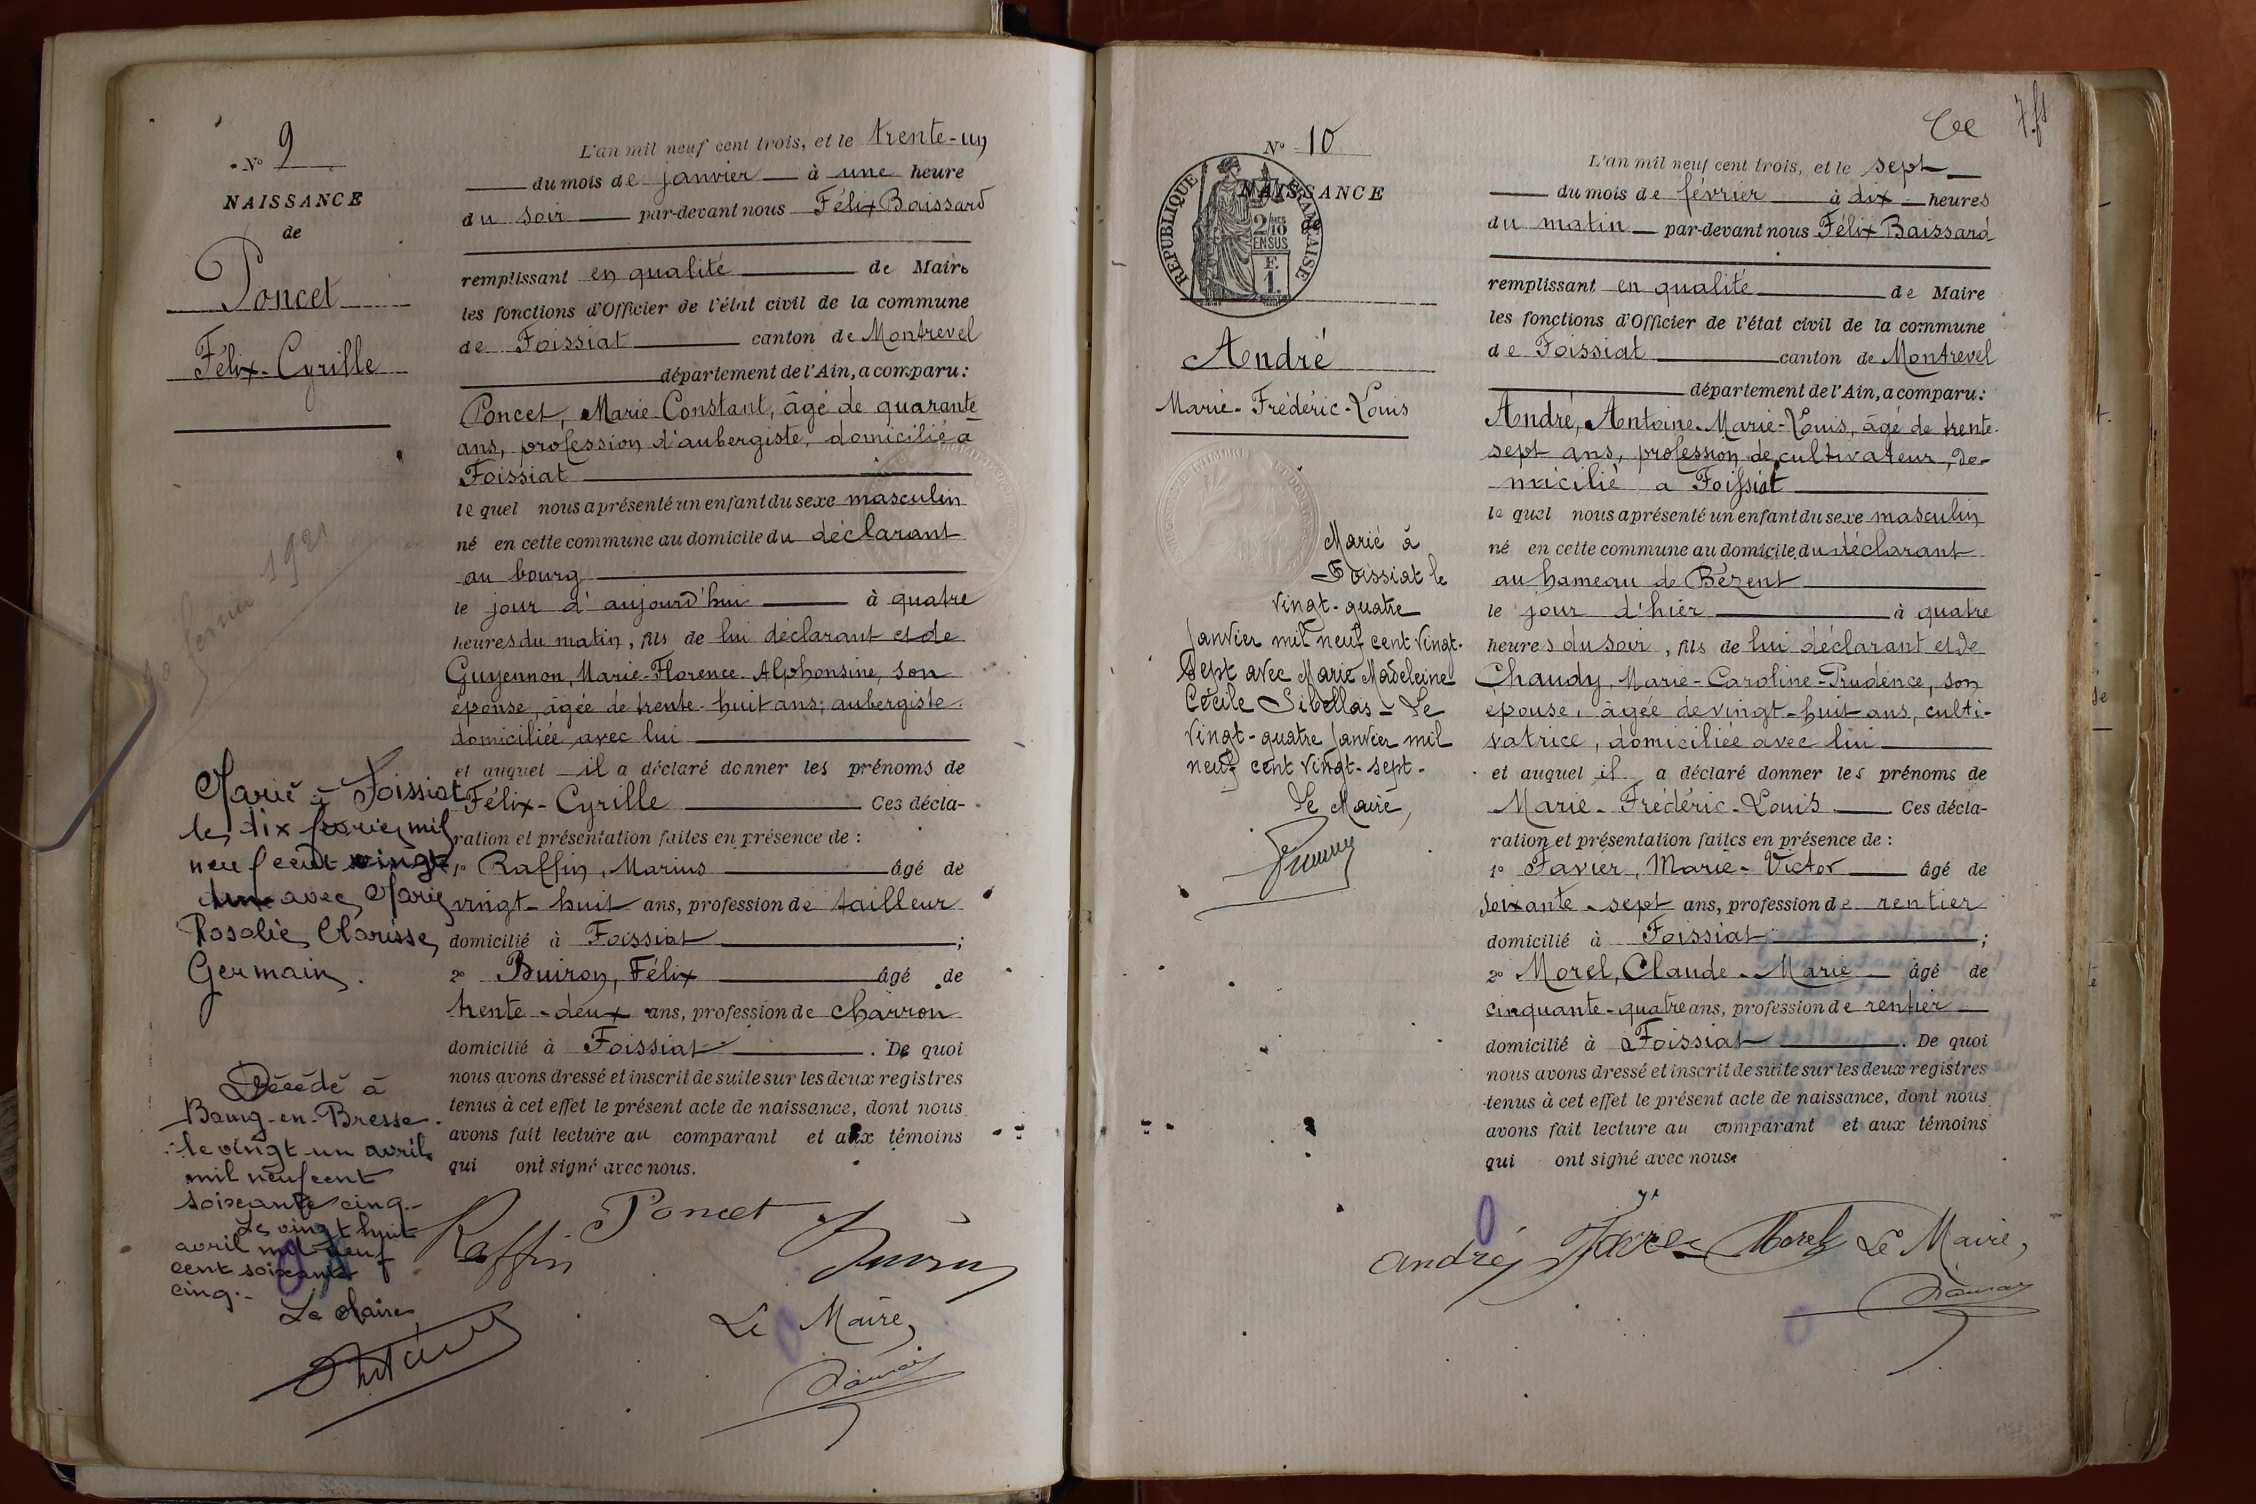 N° 9
NAISSANCE
de
Poncet
Félix-Cyrille
1921
Marié à Foissiat
le dix février mil
neuf cent vingt
un avec Marie
Rosalie Clarisse
Germain.
Décédé à
Bourg-en-Bresse
le vingt-un avril
mil neuf cent
soixante cinq.-
Le vingt huit
avril mil neuf
cent soixante
cinq.-
Le Maire
L'an mil neuf cent trois, et le trente-un
du mois de janvier à une heure
du soir par-devant nous Félix Baissard
remplissant en qualité de Maire
les fonctions d'Officier de l'état civil de la commune
de Foissiat canton de Montrevel
département de l'Ain, a comparu:
Poncet, Marie-Constant, âgé de quarante
ans, profession d'aubergiste, domicilié à
Foissiat
lequel nous a présenté un enfant du sexe masculin
né en cette commune au domicile du déclarant
au bourg
le jour d'aujourd'hui à quatre
heures du matin, fils de lui déclarant et de
Guyennon, Marie-Florence-Alphonsine, son
épouse, âgée de trente-huit ans; aubergiste.
domiciliée avec lui
et auquel il a déclaré donner les prénoms de
Félix-Cyrille Ces décla-
ration et présentation faites en présence de :
1° Raffin, Marius âgé de
vingt-huit ans, profession de tailleur
domicilié à Foissiat ;
2° Buiron, Félix âgé de
trente-deux ans, profession de charron
domicilié à Foissiat . De quoi
nous avons dressé et inscrit de suite sur les deux registres
tenus à cet effet le présent acte de naissance, dont nous
avons fait lecture au comparant et aux témoins
qui ont signé avec nous.
Raffin Poncet Buiron
Le Maire,
7.
N° 10
NAISSANCE
de
REPUBLIQUE FRANÇAISE
2/10
EN SUS
F.
1.
André
Marie-Frédéric-Louis
Marié à
Foissiat le
vingt-quatre
Janvier mil neuf cent vingt-
sept avec Marie Madeleine
Cécile Sibellas - Le
vingt-quatre Janvier mil
neuf cent vingt-sept.
Le Maire,
L'an mil neuf cent trois, et le sept
du mois de février à dix heures
du matin par-devant nous Félix Baissard
remplissant en qualité de Maire
les fonctions d'Officier de l'état civil de la commune
de Foissiat canton de Montrevel
département de l'Ain, a comparu:
André, Antoine-Marie-Louis, âgé de trente-
sept ans, profession de cultivateur, do-
micilié à Foissiat
lequel nous a présenté un enfant du sexe masculin
né en cette commune au domicile du déclarant
au hameau de Bézent
le jour d'hier à quatre
heures du soir, fils de lui déclarant et de
Chaudy, Marie-Caroline-Prudence, son
épouse, âgée de vingt-huit ans, culti-
vatrice, domiciliée avec lui
et auquel il a déclaré donner les prénoms de
Marie-Frédéric-Louis Ces décla-
ration et présentation faites en présence de :
1° Favier, Marie-Victor âgé de
soixante-sept ans, profession de rentier
domicilié à Foissiat ;
2° Morel, Claude-Marie âgé de
cinquante-quatre ans, profession de rentier
domicilié à Foissiat . De quoi
nous avons dressé et inscrit de suite sur les deux registres
tenus à cet effet le présent acte de naissance, dont nous
avons fait lecture au comparant et aux témoins
qui ont signé avec nous.
André Morel Le Maire,